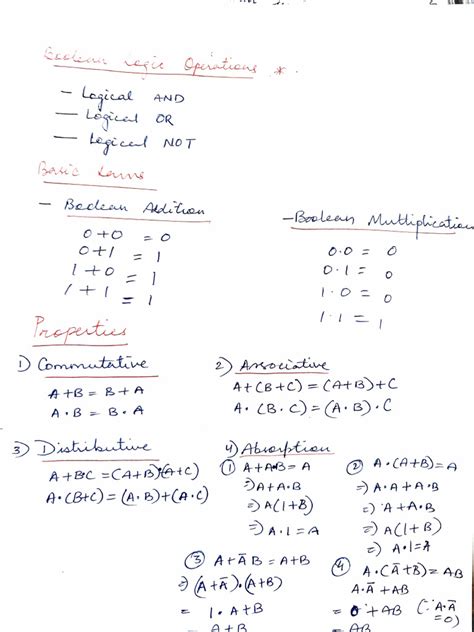 Boolean Logic Operations *
— Logical AND
— Logical OR
— Logical NOT
Basic Laws
— Boolean Addition
0+0 = 0
0+1 = 1
1+0 = 1
1+1 = 1
— Boolean Multiplication
0.0 = 0
0.1 = 0
1.0 = 0
1.1 = 1
Properties
1) Commutative
A+B = B+A
A.B = B.A
2) Associative
A+(B+C) = (A+B)+C
A.(B.C) = (A.B).C
3) Distributive
A+BC = (A+B).(A+C)
A.(B+C) = (A.B)+(A.C)
4) Absorption
① A+A.B = A
⇒ A+A.B
⇒ A(1+B)
⇒ A.1 = A
② A.(A+B) = A
⇒ A.A+A.B
⇒ A+A.B
⇒ A(1+B)
⇒ A.1=A
③ A+ĀB = A+B
⇒ (A+Ā).(A+B)
= 1.A+B
= A+B
④ A.(Ā+B) = AB
A.Ā+AB
= 0+AB (∵ A.Ā =0)
= AB